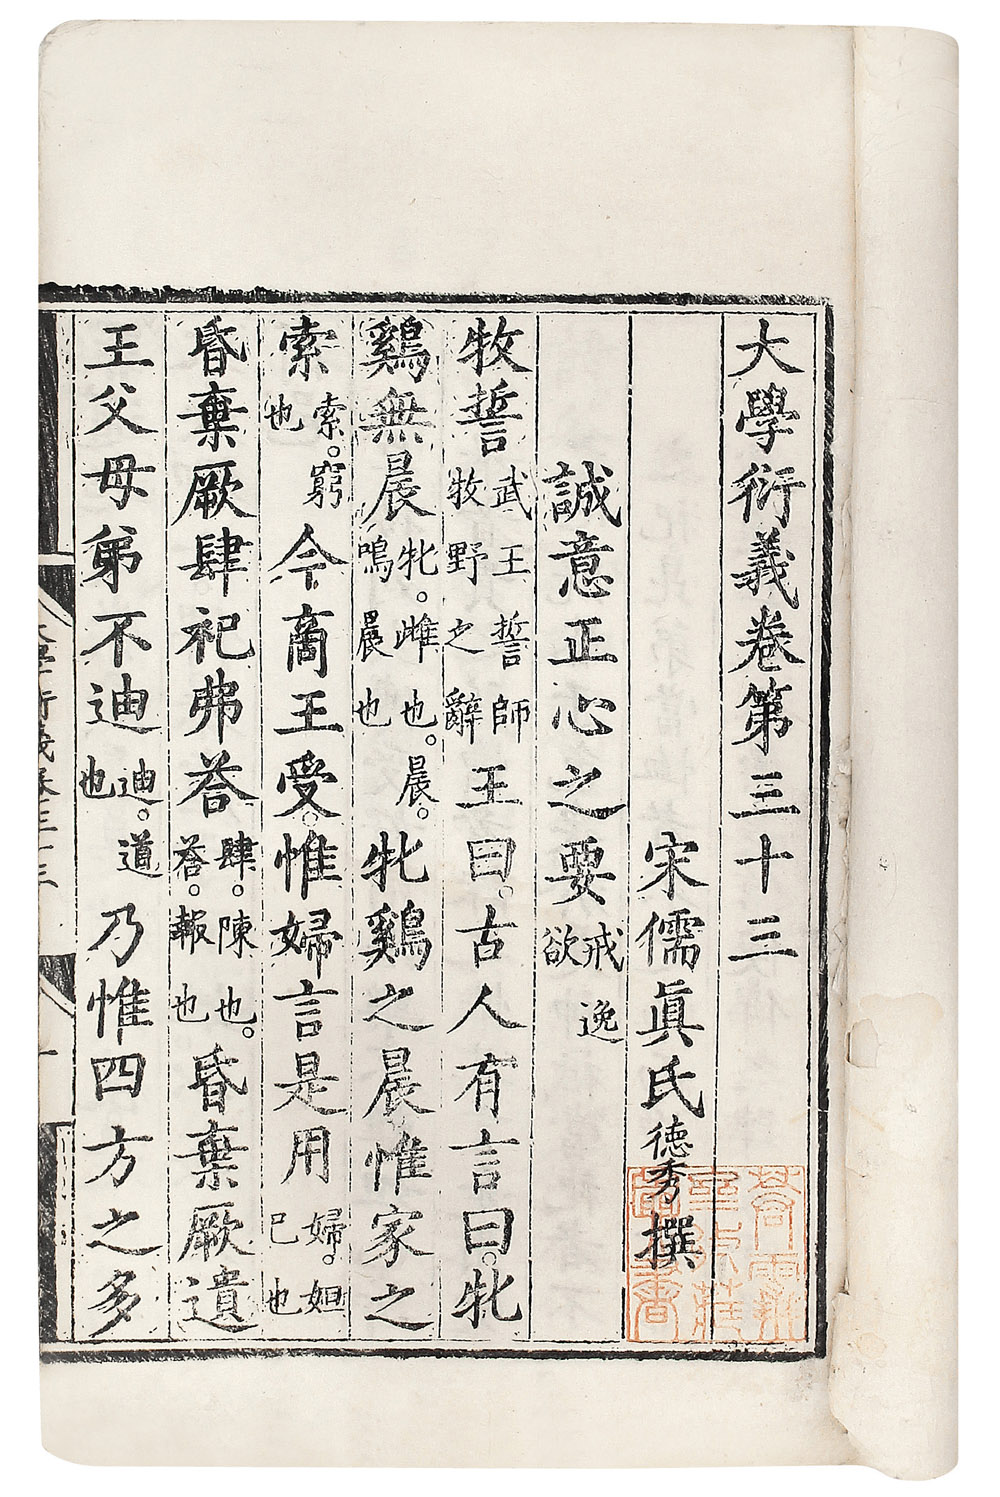 大學衍義卷第三十三
宋儒眞氏徳秀撰
誠意正心之要戒逸欲
牧誓武王誓師牧野之辭王曰。古人有言曰。牝
鷄無晨牝。雌也。晨。鳴晨也牝鷄之晨惟家之
索索。窮也今商王受。惟婦言是用婦。妲己也
昏棄厥肆祀弗荅肆。陳也。荅。報也昏棄厥遺
王父母弟不迪迪。道也乃惟四方之多